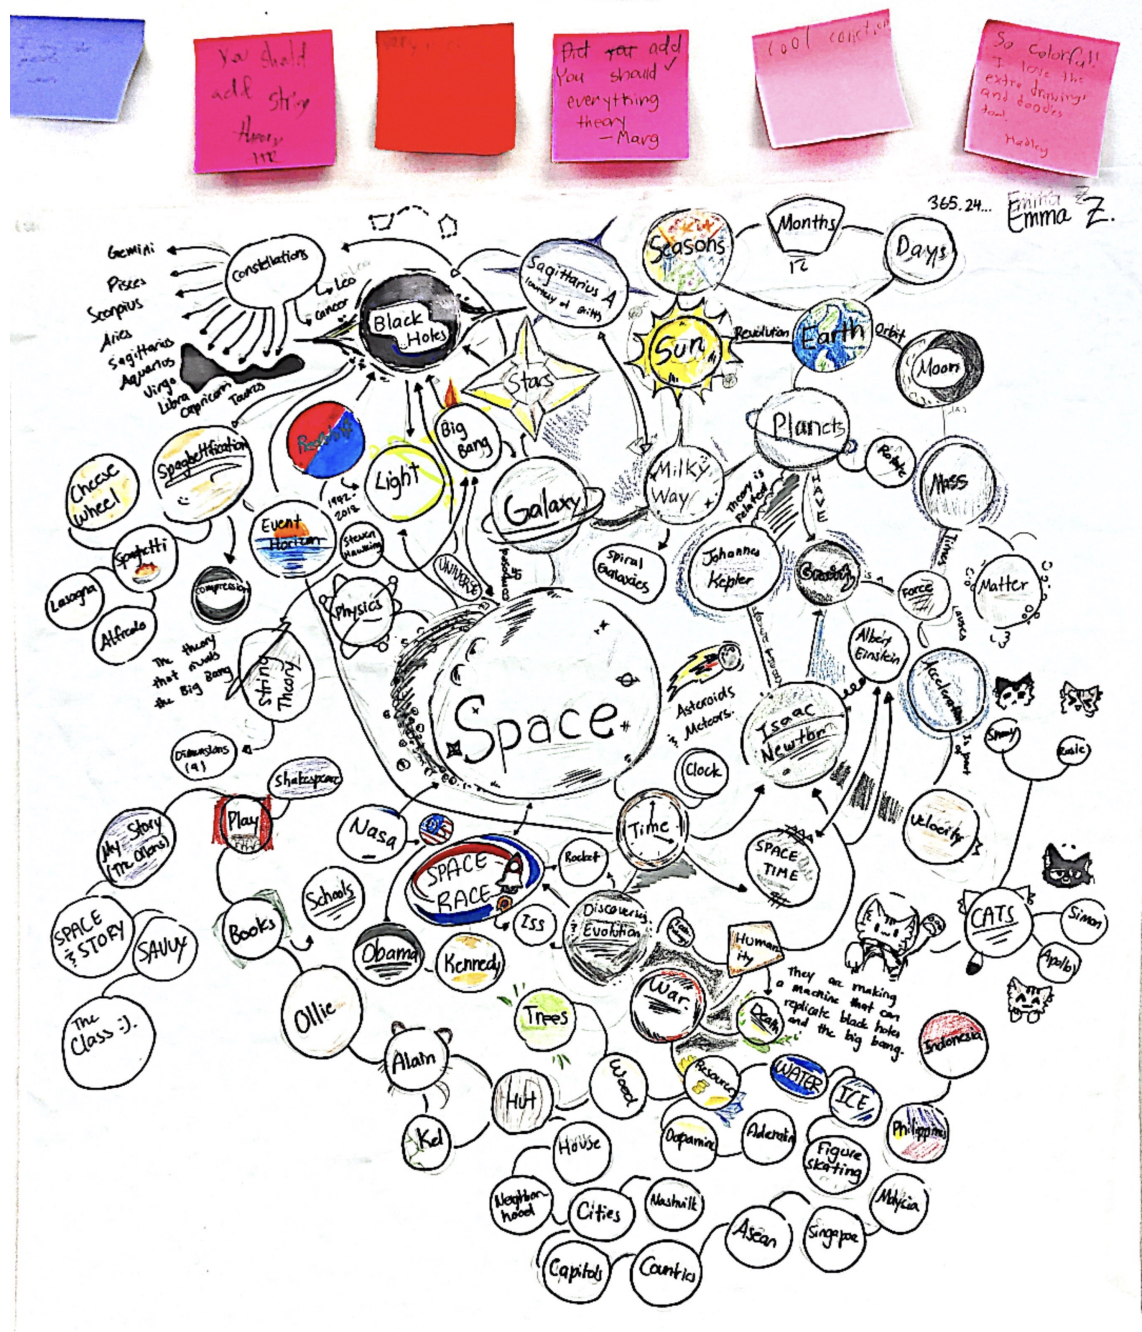 You should
add string
theory
But you add
You should
everything
theory
— Marg
cool
So colorful!
I love the
extra drawings
and doodles
too!
Hadley
365.24...
Emma Z.
Emma Z.
Gemini
Pisces
Scorpius
Aries
Sagittarius
Aquarius
Virgo
Libra
Capricorn
Taures
Leo
Leo
cancer
Constellations
Black
Holes
Sagittarius A
Seasons
Months
12
Days
Sun
Revolution
Earth
Orbit
Moon
Stars
Big
Bang
Light
Galaxy
Milky
Way
Spiral
Galaxies
Planets
HAVE
Theory is
related
Mass
Times
Matter
Force
causes
is a
Gravity
Johannes
Kepler
Albert
Einstein
Acceleration
is part
of
Velocity
Cheese
wheel
Spaghettification
Spaghetti
Lasagna
Alfredo
compression
Event
Horizon
1942-
2018
Steven
Hawking
Physics
UNIVERSE
String
Theory
The theory
that rivals
the Big Bang
Dimensions
(9)
Space
Asteroids
& Meteors.
Clock
Isaac
Newton
Time
SPACE
TIME
Shakespeare
Play
My
Story
SPACE
STORY
SAVVY
The
Class :).
Books
Schools
Nasa
SPACE
RACE
Rocket
ISS
Obama
Kennedy
Discoveries
Evolution
Human
ity
War
Death
They are making
a machine that can
replicate black holes
and the big bang.
CATS
Simon
Rosie
Ollie
Alain
Kel
Trees
Hut
Wood
Resources
WATER
ICE
Dopamine
Figure
skating
Indonesia
Philippines
Malycia
Singapoe
Asean
House
Neighbor
hood
Cities
Nashville
Capitols
Countries